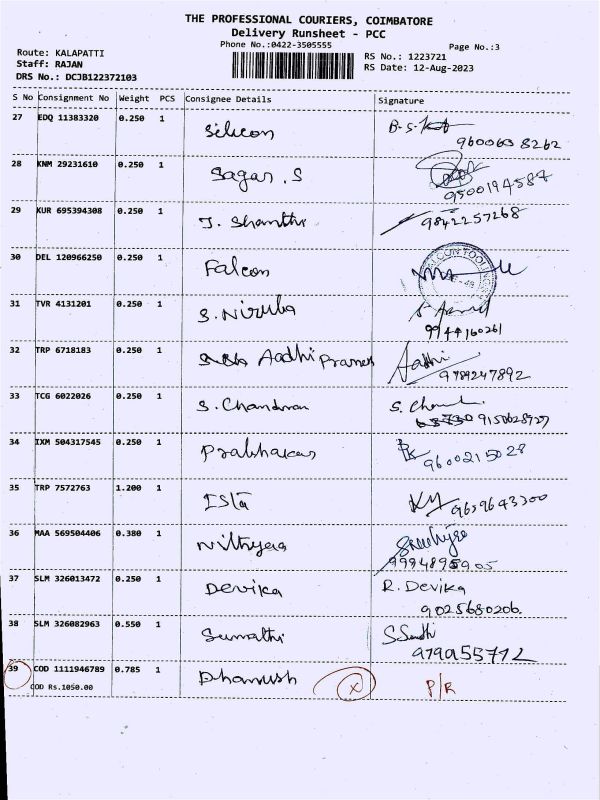 THE PROFESSIONAL COURIERS, COIMBATORE
Delivery Runsheet - PCC
Phone No.:0422-3505555
Page No.:3
Route: KALAPATTI
Staff: RAJAN
DRS No.: DCJB122372103
RS No.: 1223721
RS Date: 12-Aug-2023
S No Consignment No Weight PCS Consignee Details Signature
27 EDQ 11383320 0.250 1 Silicon
9600638262
28 KNM 29231610 0.250 1 Sagar. S
9500194584
29 KUR 695394308 0.250 1 J. Shanthi 9842257268
30 DEL 120966250 0.250 1 Falcon
31 TVR 4131201 0.250 1 S. Niruba
9944160261
32 TRP 6718183 0.250 1 Aadhi Pranesh Aadhi
9789247892
33 TCG 6022026 0.250 1 S. Chandran
34 IXM 504317545 0.250 1 Prabhakar
9600215028
35 TRP 7572763 1.200 1 9659643300
36 MAA 569504406 0.380 1 Nithyea
37 SLM 326013472 0.250 1 Devika R. Devika
9025680206.
38 SLM 326082963 0.550 1 Sumathi
9790155712
39 COD 1111946789 0.785 1 Dhanush X P/R
COD Rs.1050.00